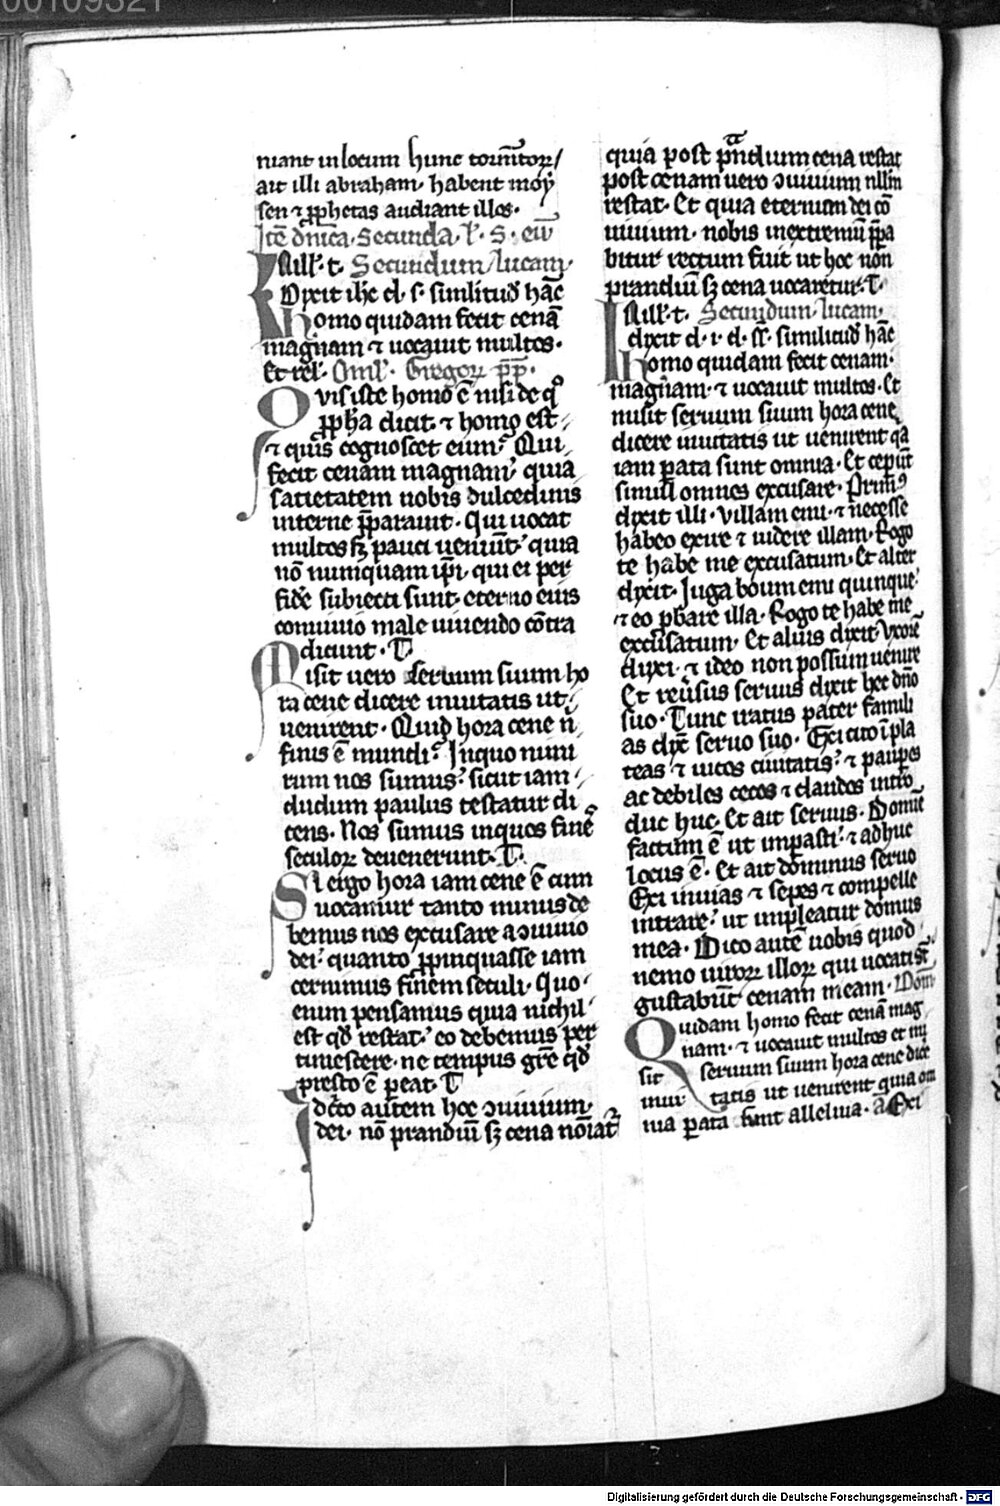 00109321
niant in locum hunc tormētoꝝ/
ait illi abraham· habent moẏ
sen ⁊ ꝓphetas audiant illos·
Itē dnīca· Secunda· l'· S· eiū
In ill'· t· Secundum lucam·
Dixit ihc d· s· similitud hāc
homo quidam fecit cenā
magnam ⁊ uocauit multos·
Et rel'· Omił· Gregorij pp̄·
Quis iste homo ē nisi de qͦ
ꝓpħa dicit· ⁊ homo est
⁊ quis cognoscet eum? Qui
fecit cenam magnam· quia
satietatem nobis dulcedinis
interne p̄parauit· Qui uocat
multos sꝫ pauci ueniūt· quia
nō nunquam ip̄i qui ei per
fidē subiecti sunt· eterno eius
conuiuio male uiuendo cōtra
dicunt· T
Misit uero seruum suum ho
ra cene dicere inuitatis ut
uenirent· Quid hora cene n̄
finis ē mundi? In quo nimi
rum nos sumus? sicut iam
dudum paulus testatur di
cens· Nos sumus in quos finē
seculoꝝ deuenerunt· T·
Si ergo hora iam cene ē cum
uocamur tanto minus de
bemus nos excusare a ↄuiuio
dei· quanto ꝓpinquasse iam
cernimus finem seculi· Quo
enim pensamus quia nichil
est qd restat· eo debemus per
timescere· ne tempus grē qd
presto ē peat· T
Idcō autem hoc ↄuiuium
dei· nō prandiū sꝫ cena nōiat᷑
quia post prandium cena restat
post cenam uero ↄuiuium nullm
restat· Et quia eternum dei cō
uiuium· nobis in extremū p̄pa
bitur rectum fuit ut hoc non
prandiū sꝫ cena uocaretur· T·
In ill'· t· Secundum lucam·
dixit d· i· d· s· similitud hāc
homo quidam fecit cenam·
magnam· ⁊ uocauit multos· Et
misit seruum suum hora cene
dicere inuitatis ut uenirent qa
iam parata sunt omnia· Et ceperūt
simul omnes excusare· Primꝰ
dixit illi· Villam emi· ⁊ necesse
habeo exire ⁊ uidere illam· Rogo
te habe me excusatum· Et alter
dixit· Iuga boum emi quinque
⁊ eo pbare illa· Rogo te habe me
excusatum· Et alius dixit· Vxorē
duxi· ⁊ ideo non possum uenire
Et reūsus seruus dixit hec dn̄o
suo· Tunc iratus pater famili
as dixͭ seruo suo· Exi cito ī pla
teas ⁊ uicos ciuitatis· ⁊ paupes
ac debiles cecos ⁊ claudos intro
duc huc· Et ait seruus· Domīe
factum ē ut impasti· ⁊ adhuc
locus ē· Et ait dominus seruo
Exi in uias ⁊ sepes ⁊ compelle
intrare· ut impleatur domus
mea· Dico autē uobis quod
nemo uiroꝝ illoꝝ qui uocati st̄
gustabūt cenam meam· Dom̄
Quidam homo fecit cenā mag
nam· ⁊ uocauit multos et mi
sit seruum suum hora cene dice
inuitatis ut uenirent quia om
nia parata sunt alleluia· ā Exi
Digitalisierung gefördert durch die Deutsche Forschungsgemeinschaft - DFG